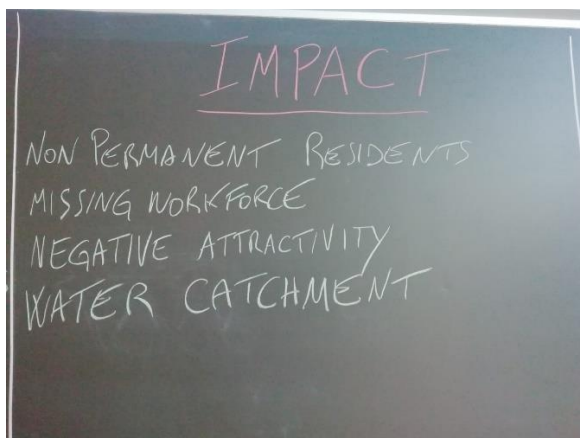 IMPACT
NON PERMANENT RESIDENTS
MISSING WORKFORCE
NEGATIVE ATTRACTIVITY
WATER CATCHMENT